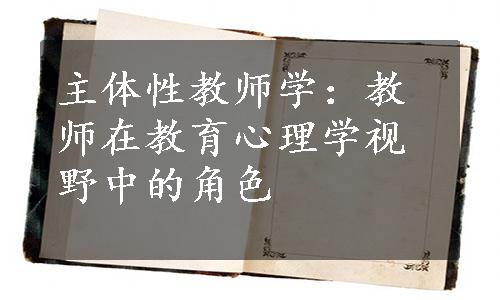 主体性教师学：教
师在教育心理学视
野中的角色